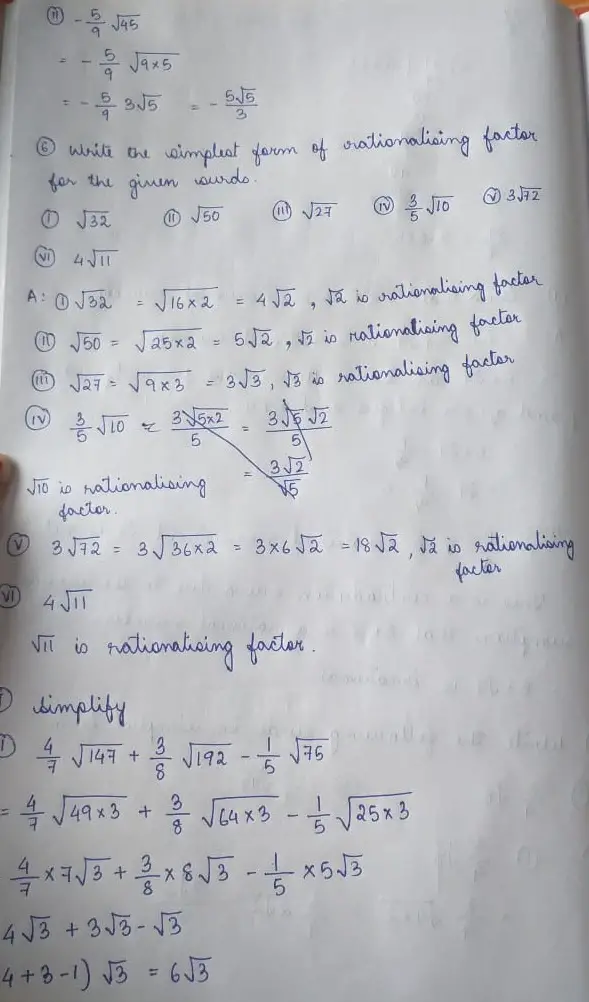 (ii) -5/9 √45
= -5/9 √9×5
= -5/9 3√5 = -5√5/3
⑥ Write the simplest form of rationalising factor
for the given surds.
(i) √32 (ii) √50 (iii) √27 (iv) 3/5 √10 (v) 3√72
(vi) 4√11
A: (i) √32 = √16×2 = 4√2, √2 is rationalising factor
(ii) √50 = √25×2 = 5√2, √2 is rationalising factor
(iii) √27 = √9×3 = 3√3, √3 is rationalising factor
(iv) 3/5 √10 = 3√5×2/5 = 3√5√2/5
= 3√2/√5
√10 is rationalising
factor.
(v) 3√72 = 3√36×2 = 3×6√2 = 18√2, √2 is rationalising
factor
(vi) 4√11
√11 is rationalising factor.
Simplify
4/7 √147 + 3/8 √192 - 1/5 √75
= 4/7 √49×3 + 3/8 √64×3 - 1/5 √25×3
4/7 ×7√3 + 3/8 ×8√3 - 1/5 ×5√3
4√3 + 3√3 - √3
4+3-1) √3 = 6√3